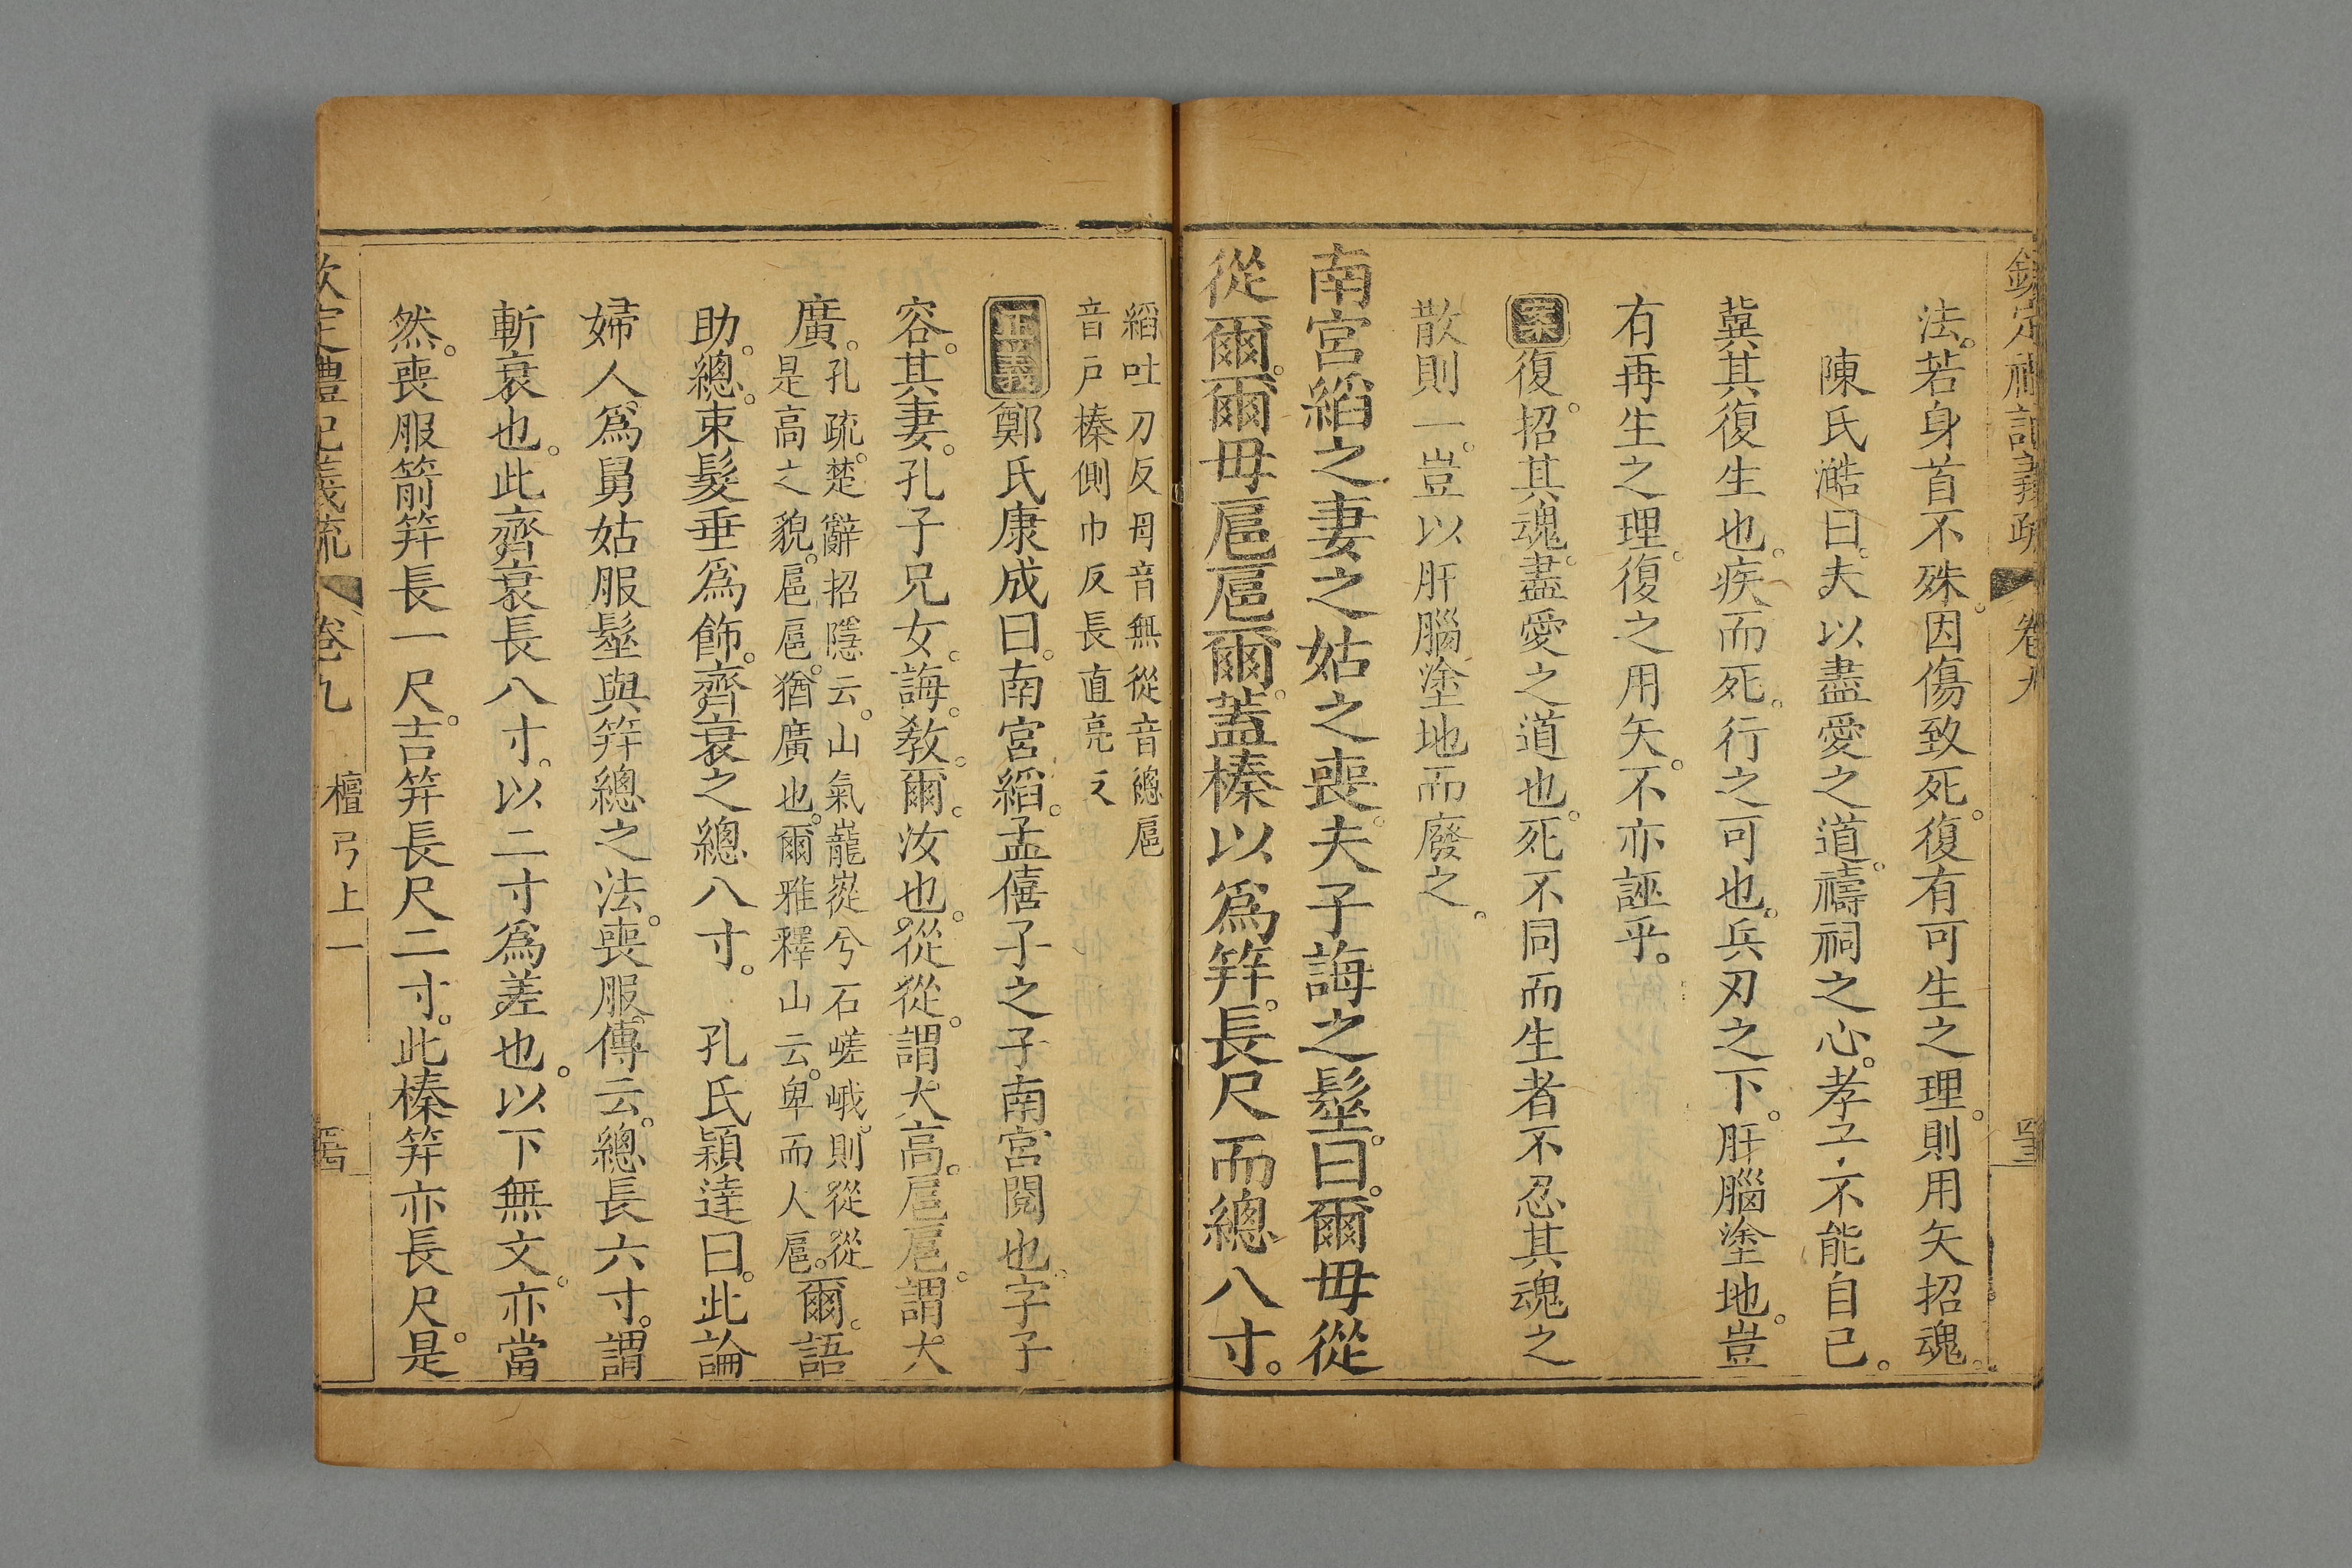 欽定禮記義疏 卷九
法。若身首不殊。因傷致死。復有可生之理。則用矢招魂。
陳氏澔曰。夫以盡愛之道。禱祠之心。孝子不能自已。
冀其復生也。疾而死。行之可也。兵刃之下。肝腦塗地。豈
有再生之理。復之用矢。不亦誣乎。
案復。招其魂。盡愛之道也。死不同而生者不忍其魂之
散則一。豈以肝腦塗地而廢之。
南宮縚之妻之姑之喪。夫子誨之髽。曰。爾毋從
從爾。爾毋扈扈爾。蓋榛以爲筓。長尺而總八寸。
縚吐刀反毋音無從音總扈
音戶榛側巾反長直亮反
正義鄭氏康成曰。南宮縚。孟僖子之子南宮閱也。字子
容。其妻。孔子兄女。誨。敎。爾。汝也。從從。謂大高。扈扈。謂大
廣。孔疏。楚辭招隱云。山氣巃嵷兮石嵯峨。則從從
是高之貌。扈扈。猶廣也。爾雅釋山云。卑而大扈。爾。語
助。總。束髮垂爲飾。齊衰之總八寸。 孔氏穎達曰。此論
婦人爲舅姑服髽與筓總之法。喪服傳云。總長六寸。謂
斬衰也。此齊衰長八寸。以二寸爲差也。以下無文。亦當
然。喪服箭筓長一尺。吉筓長尺二寸。此榛筓亦長尺。是
欽定禮記義疏 卷九 檀弓上一